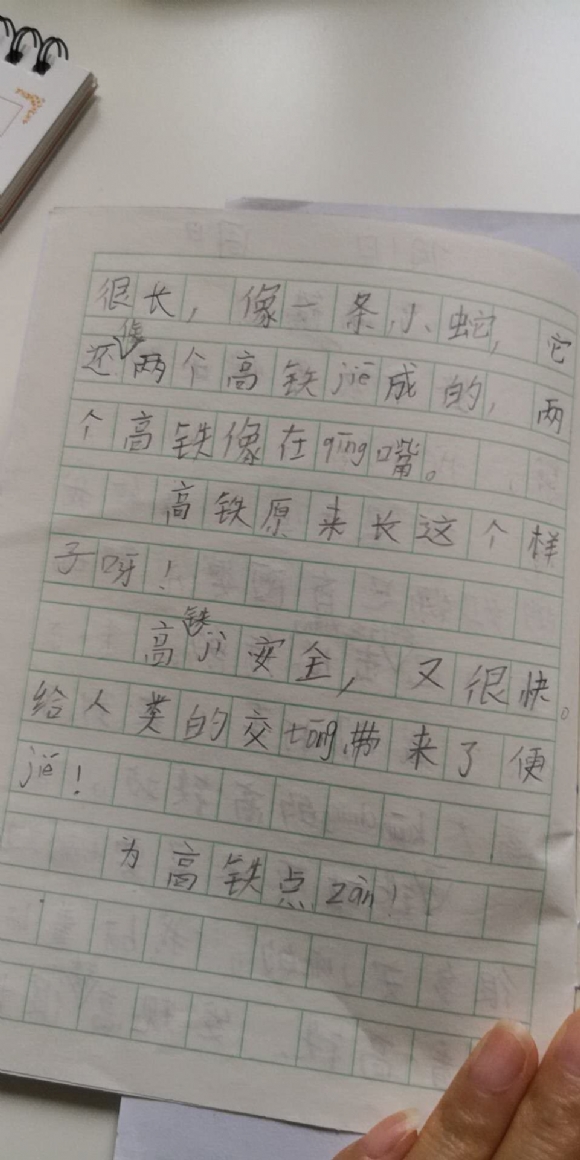 很长，像一条小蛇，它
还像两个高铁jiē成的，两
个高铁像在qīng嘴。
高铁原来长这个样
子呀！
高铁jì安全，又很快。
给人类的交tōng带来了便
jié！
为高铁点zàn！